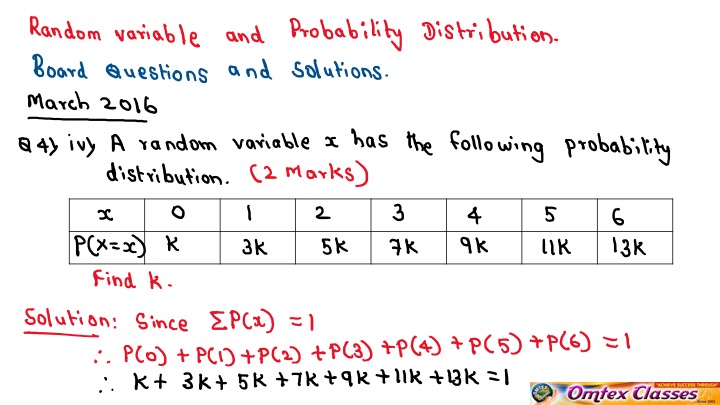 Random variable and Probability Distribution.
Board Questions and Solutions.
March 2016
Q4) iv) A random variable x has the following probability
distribution. (2 Marks)
x 0 1 2 3 4 5 6
P(X=x) K 3K 5K 7K 9K 11K 13K
Find K.
Solution: Since ΣP(x) = 1
∴ P(0) + P(1) + P(2) + P(3) + P(4) + P(5) + P(6) = 1
∴ K + 3K + 5K + 7K + 9K + 11K + 13K = 1
"ACHIEVE SUCCESS THROUGH"
Omtex Classes